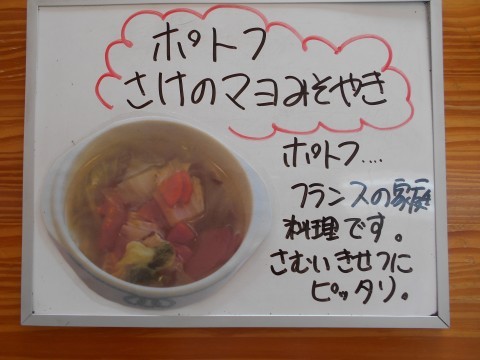 ポトフ
さけのマヨみそやき
ポトフ....
フランスの家庭
料理です。
さむいきせつに
ピッタリ。